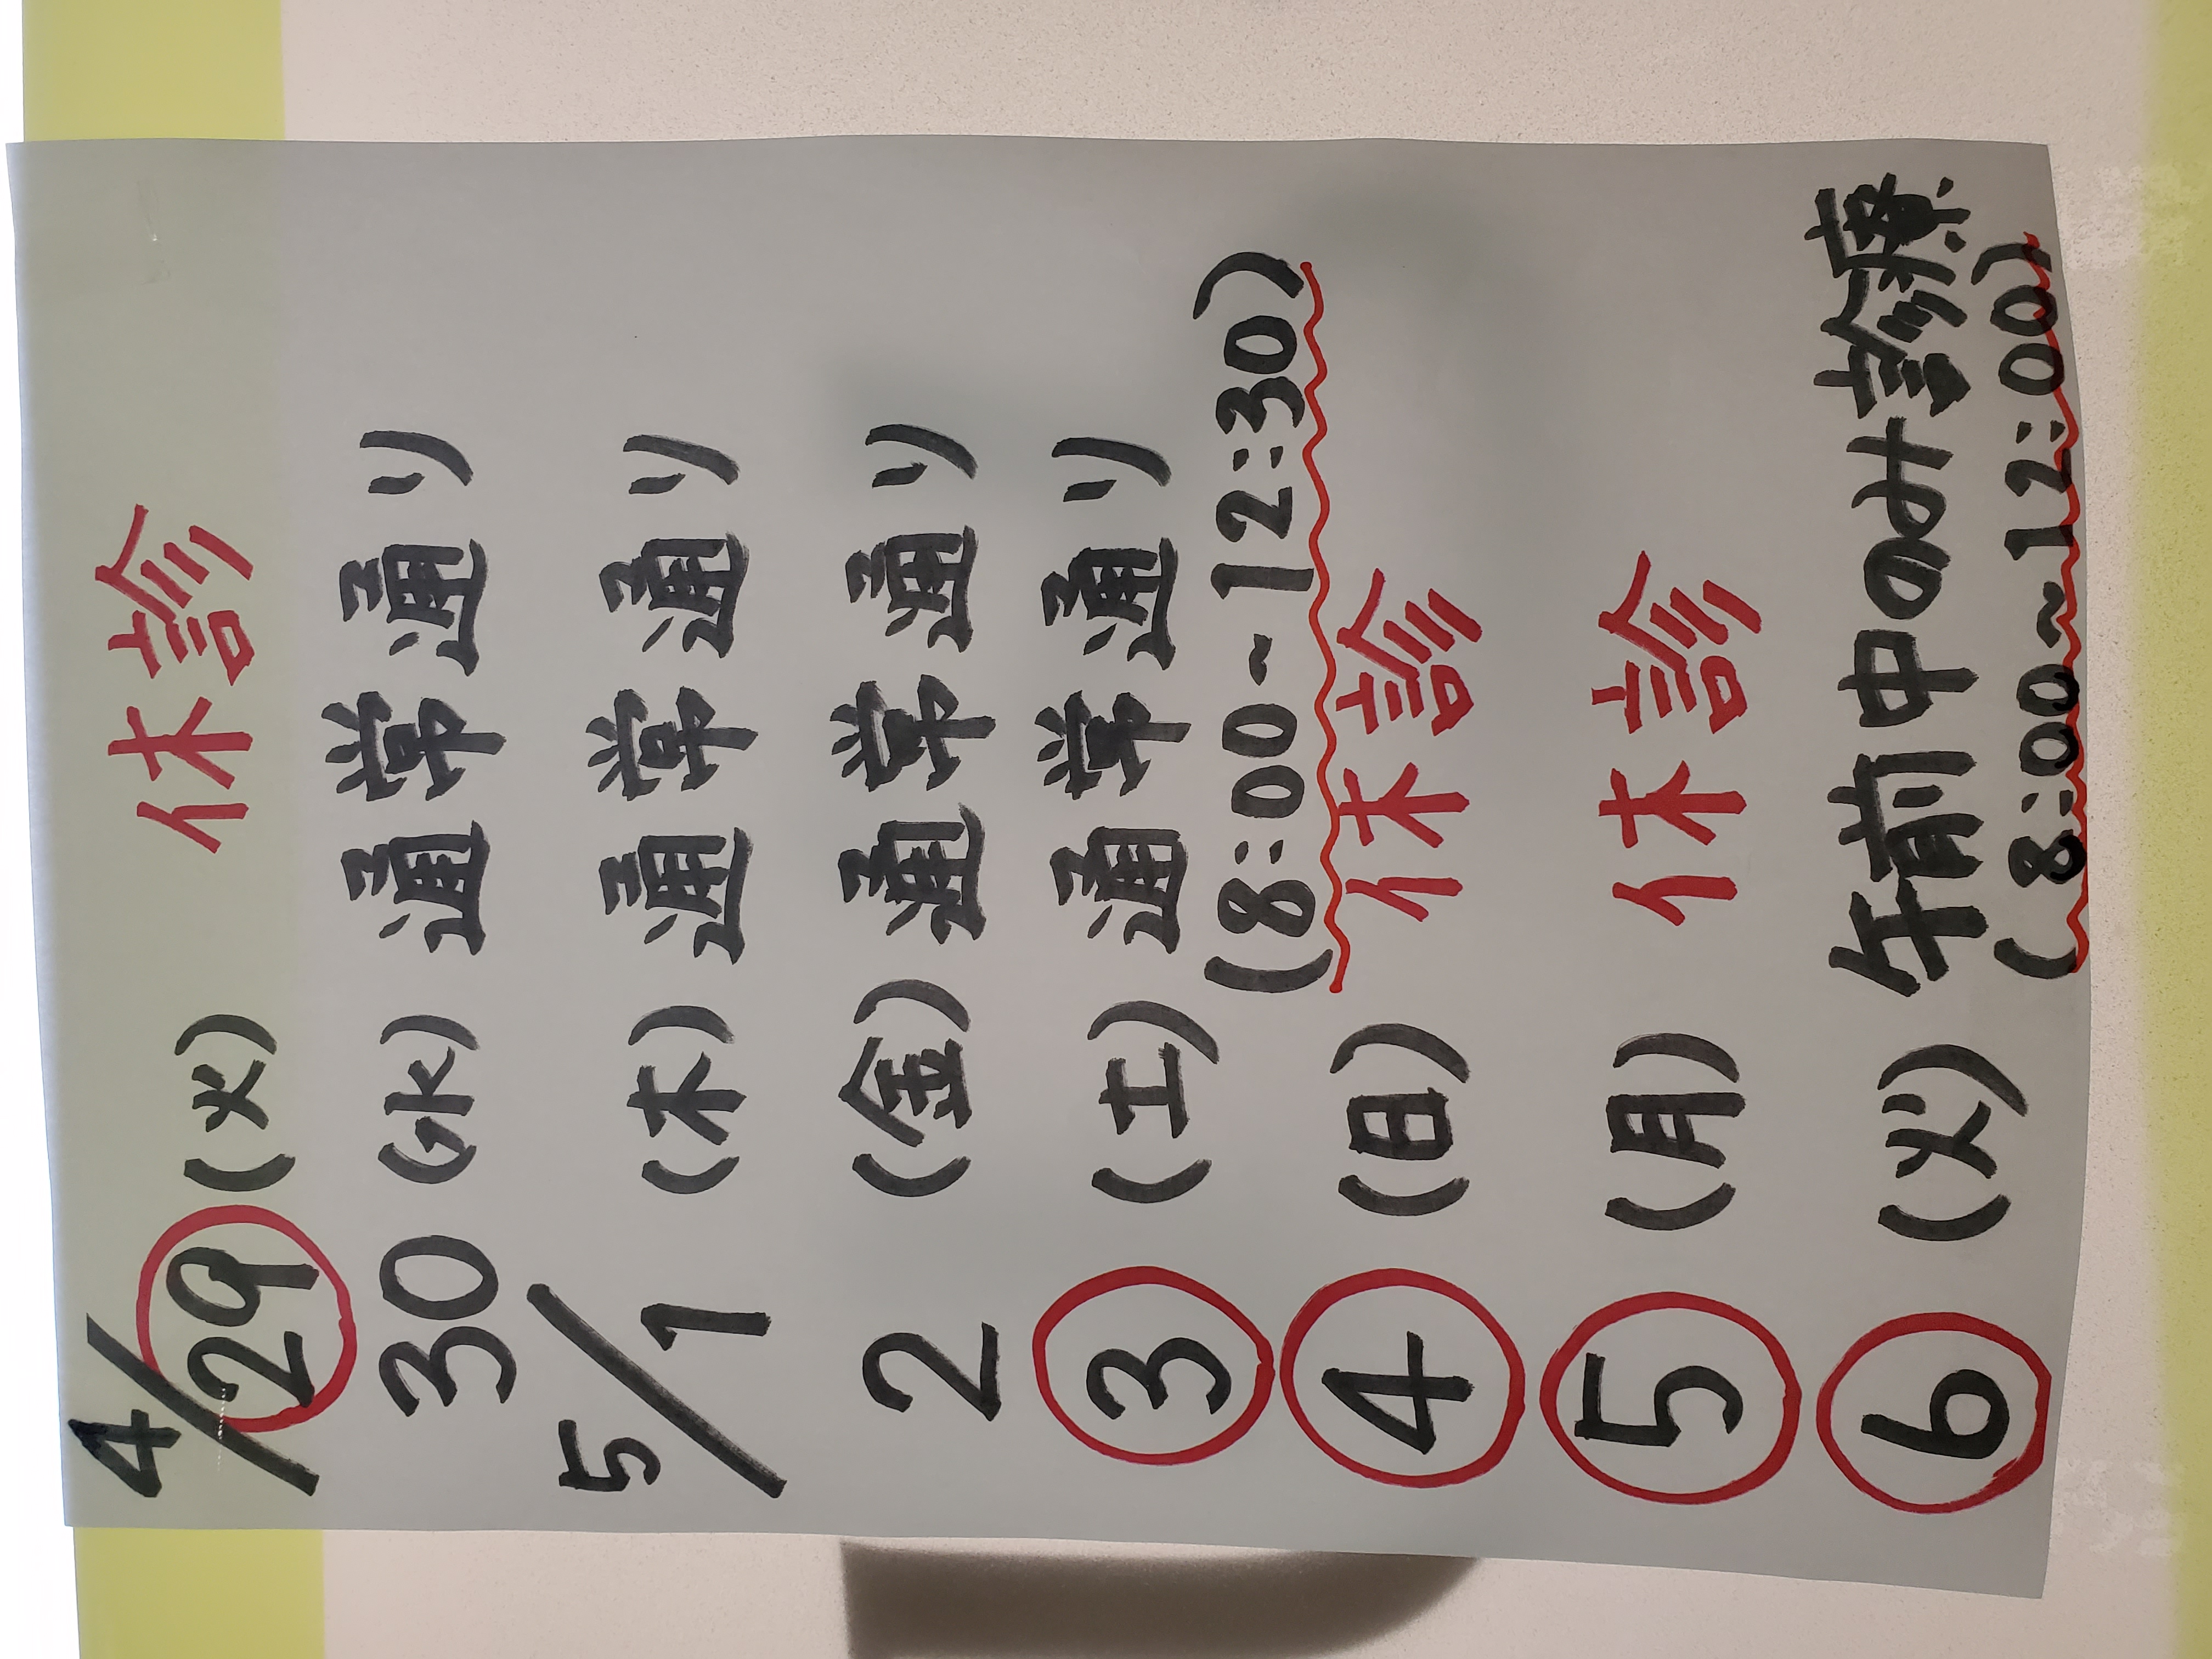 4/29 (火) 休診
30 (水) 通常通り
5/1 (木) 通常通り
2 (金) 通常通り
3 (土) 通常通り
(8:00~12:30)
4 (日) 休診
5 (月) 休診
6 (火) 午前中のみ診療
(8:00~12:00)